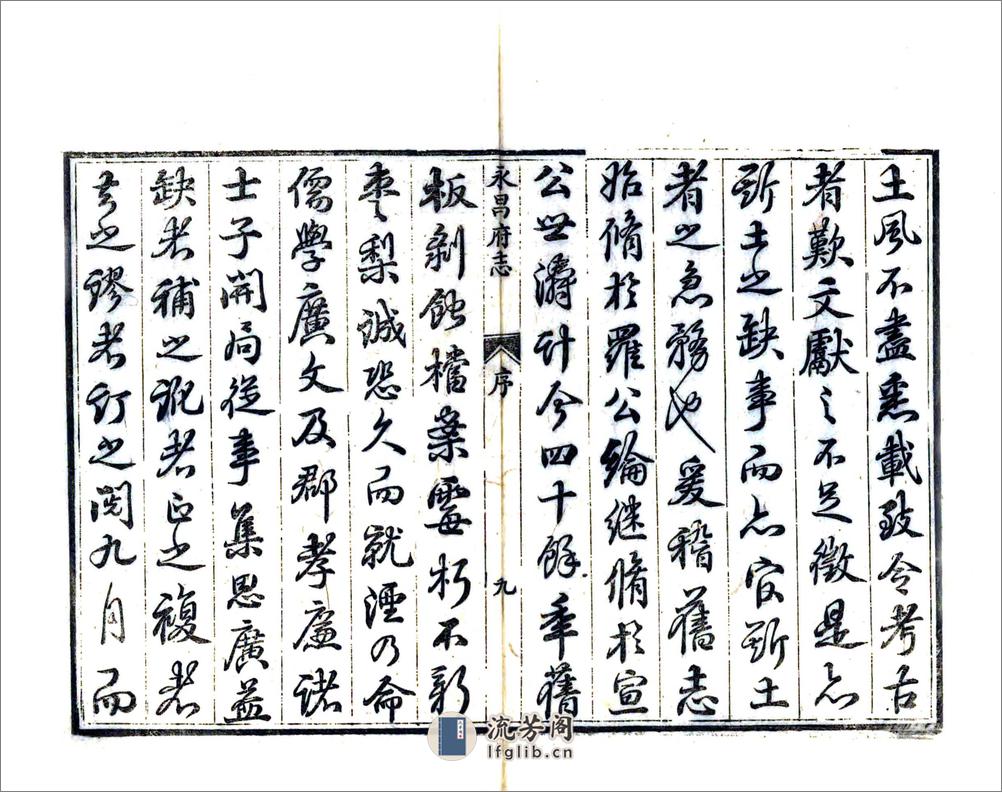 土風不盡悉載致令考古
者歎文獻之不足徵是亦
斯土之缺事而亦官斯土
者之急務也爰稽舊志
始脩於羅公綸繼脩於宣
公世濤計今四十餘年舊
永昌府志 序 九
板剝蝕檔葉霉朽不新
棗梨誠恐久而就湮乃命
儒學廣文及郡孝廉諸
士子開局從事集思廣益
缺者補之訛者正之複者
去之謬者訂之閱九月而
流芳阁
lfglib.cn